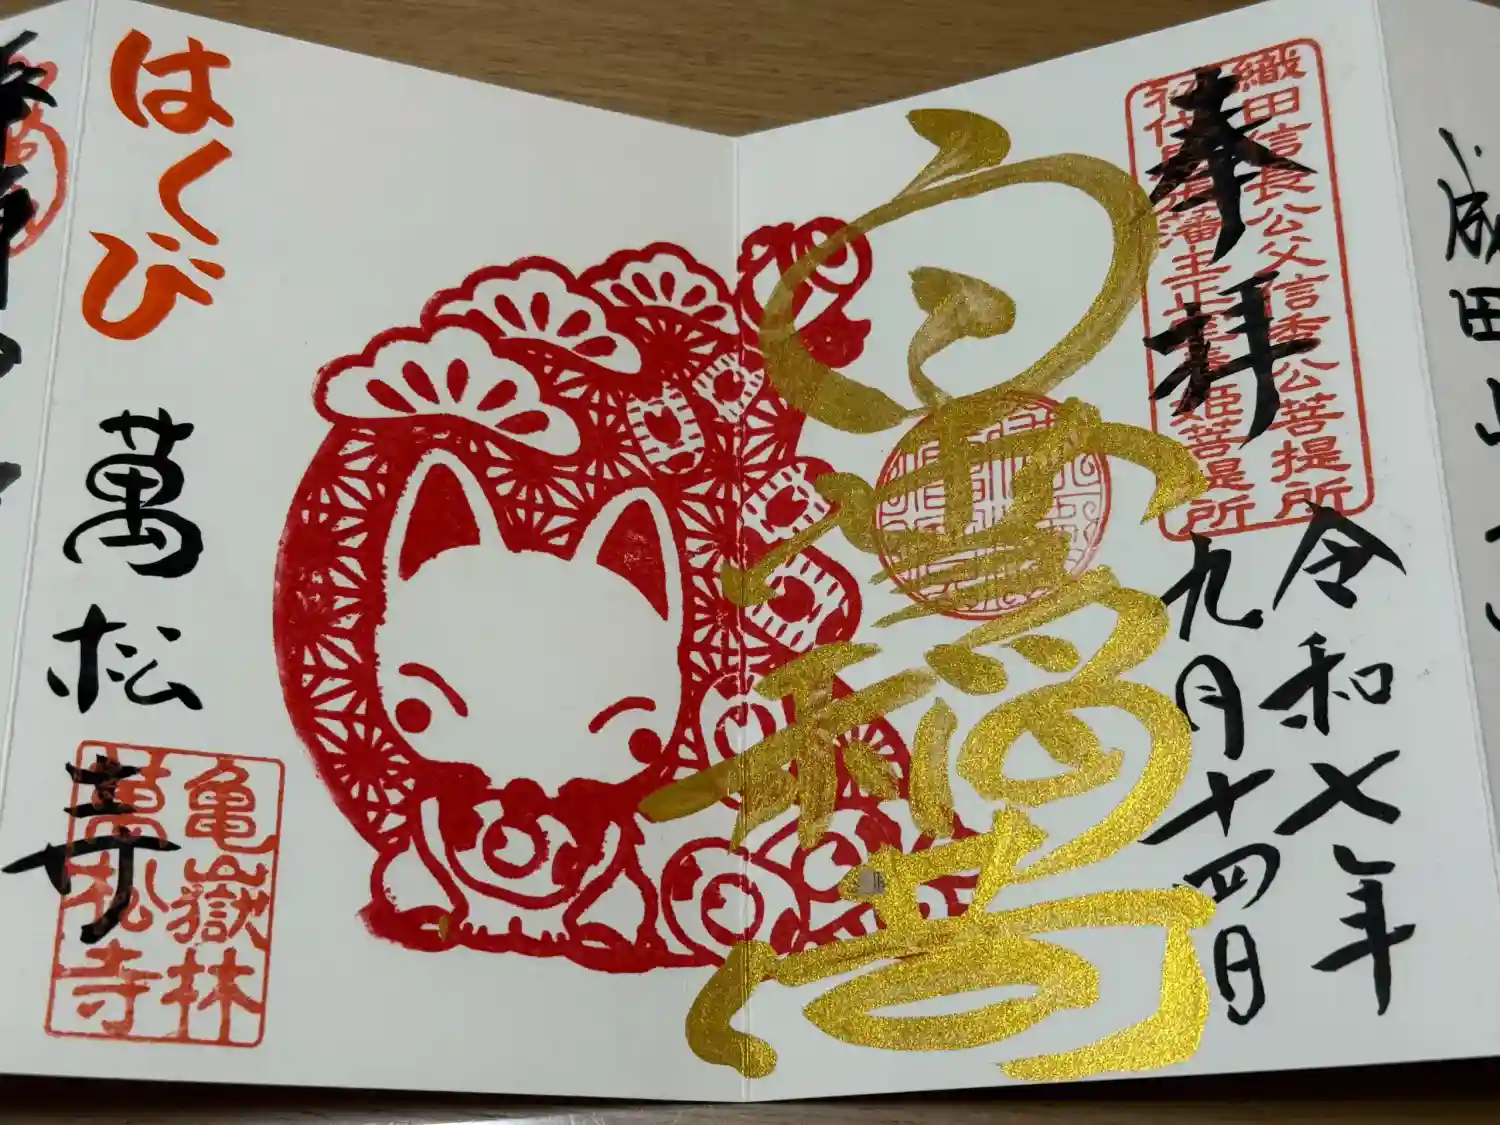 成田山
織田信長公父信秀公菩提所
初代尾張藩主正室春姫菩提所
奉拝
令和七年
九月十四日
白雪稲荷
はくび
萬松寺
亀嶽林
萬松寺